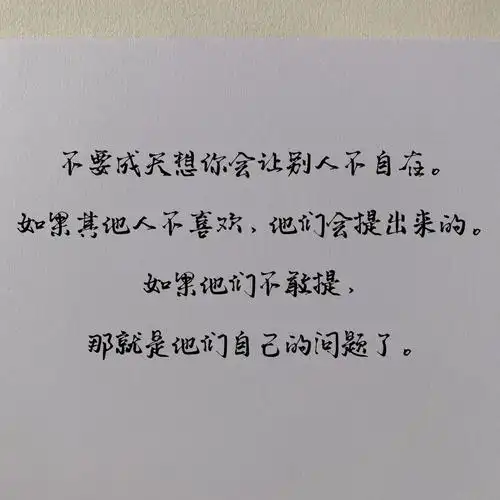 不要成天想你会让别人不自在。
如果其他人不喜欢,他们会提出来的。
如果他们不敢提,
那就是他们自己的问题了。